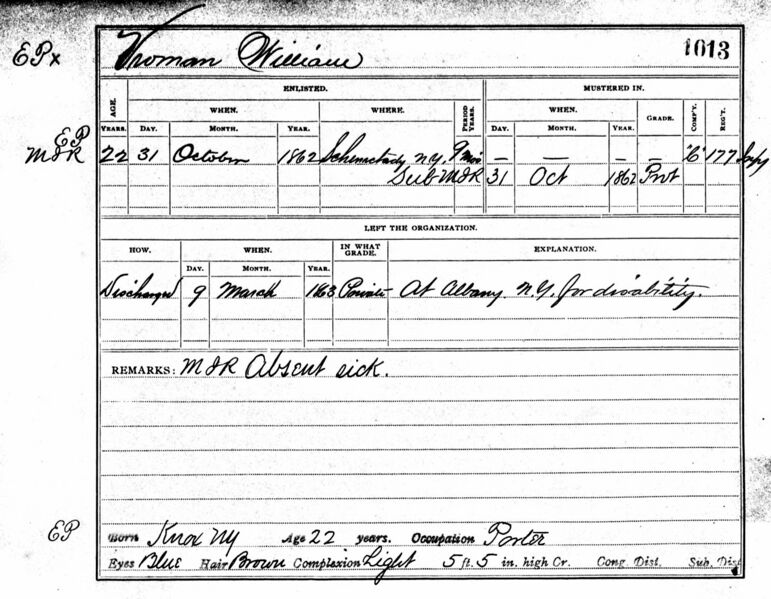 EPx Vroman William 1013
ENLISTED. MUSTERED IN.
AGE. WHEN. WHERE. PERIOD YEARS. WHEN. GRADE. COMP'Y. REG'T.
YEARS. DAY. MONTH. YEAR. DAY. MONTH. YEAR.
EP
MIR 22 31 October 1862 Schenectady N.Y. 9 Mos — — — — "C" 177 Infy
Sub MIR 31 Oct 1862 Prvt
LEFT THE ORGANIZATION.
HOW. WHEN. IN WHAT GRADE. EXPLANATION.
DAY. MONTH. YEAR.
Discharged 9 March 1863 Private At Albany N.Y. for disability.
REMARKS: MIR Absent sick.
EP Born Knox NY Age 22 years. Occupation Porter
Eyes Blue Hair Brown Complexion Light 5 ft. 5 in. high Cr. Cong Dist. Sub. Dist